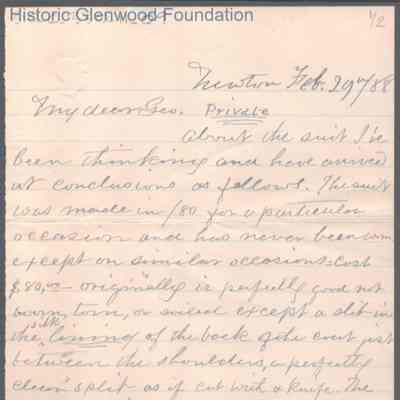 Historic Glenwood Foundation
1/2
Newton Feb. 29th/88
My dear Geo. Private
About the suit I've
been thinking and have arrived
at conclusions as follows. The suit
was made in /80 for a particular
occasion and has never been worn
except on similar occasions. Cost
$80,00 originally is perfectly good not
worn, torn, or soiled except a slit in
the silk lining of the back of the coat just
between the shoulders, a perfectly
clean split as if cut with a knife. The